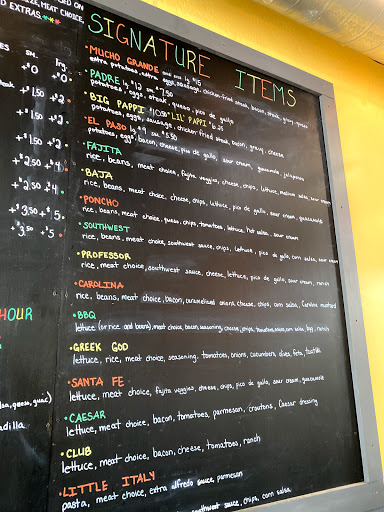 SIGNATURE ITEMS
•MUCHO GRANDE $15
extra potatoes, extra eggs, sausage, chicken fried steak, bacon, steak, gravy, queso
•PADRE lg $13 sm $7.50
potatoes, eggs, steak, queso, pico de gallo
•BIG PAPPI $10.50 "LIL' PAPPI" 6.25
potatoes, eggs, sausage, chicken fried steak, bacon, gravy, cheese
•EL PASO lg $9 sm $5.50
potatoes, eggs, bacon, cheese, pico de gallo, sour cream, guacamole, jalapenos
•FAJITA
rice, beans, meat choice, fajita veggies, cheese, chips, lettuce, salsa, sour cream
•BAJA
rice, beans, meat choice, cheese, chips, lettuce, pico de gallo, sour cream, guacamole
•PONCHO
rice, beans, meat choice, queso, chips, tomatoes, lettuce, hot salsa, sour cream
•SOUTHWEST
rice, beans, meat choice, southwest sauce, chips, lettuce, pico de gallo, corn salsa, sour cream
•PROFESSOR
rice, meat choice, southwest sauce, cheese, lettuce, pico de gallo, sour cream, ranch
•CAROLINA
rice, beans, meat choice, bacon, caramelized onions, cheese, chips, corn salsa, Carolina mustard
•BBQ
lettuce (or rice and beans), meat choice, bacon, seasoning, cheese, chips, tomatoes, corn salsa, bbq, ranch
•GREEK GOD
lettuce, rice, meat choice, seasoning, tomatoes, onions, cucumbers, olives, feta, tzatziki
•SANTA FE
lettuce, meat choice, fajita veggies, cheese, chips, pico de gallo, sour cream, guacamole
•CAESAR
lettuce, meat choice, bacon, tomatoes, parmesan, croutons, Caesar dressing
•CLUB
lettuce, meat choice, bacon, cheese, tomatoes, ranch
•LITTLE ITALY
pasta, meat choice, extra alfredo sauce, parmesan
southwest sauce, chips, corn salsa
MEAT CHOICE
EXTRAS
sm lrg
+$0 +$0
+$1.50 +$2
+$1.50 +$2
+$1.50 +$2
+$2.50 +$4
+$2.50 +$4
+$3.50 +$5
+$3.50 +$5
HOUR
queso, guac)